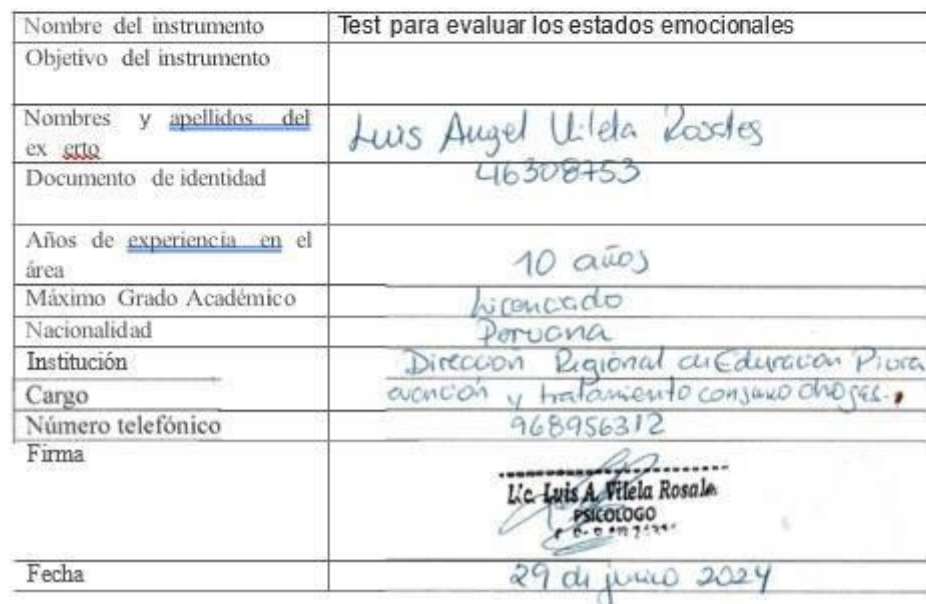 Nombre del instrumento Test para evaluar los estados emocionales
Objetivo del instrumento
Nombres y apellidos del
ex erto
Luis Angel Vilela Rosales
Documento de identidad 46308753
Años de experiencia en el
área
10 años
Máximo Grado Académico Licenciado
Nacionalidad Peruana
Institución Dirección Regional de Educación Piura
Cargo y tratamiento consumo drogas.
Número telefónico 968956312
Firma
Lic. Luis A. Vilela Rosales
PSICOLOGO
Fecha 29 de junio 2024